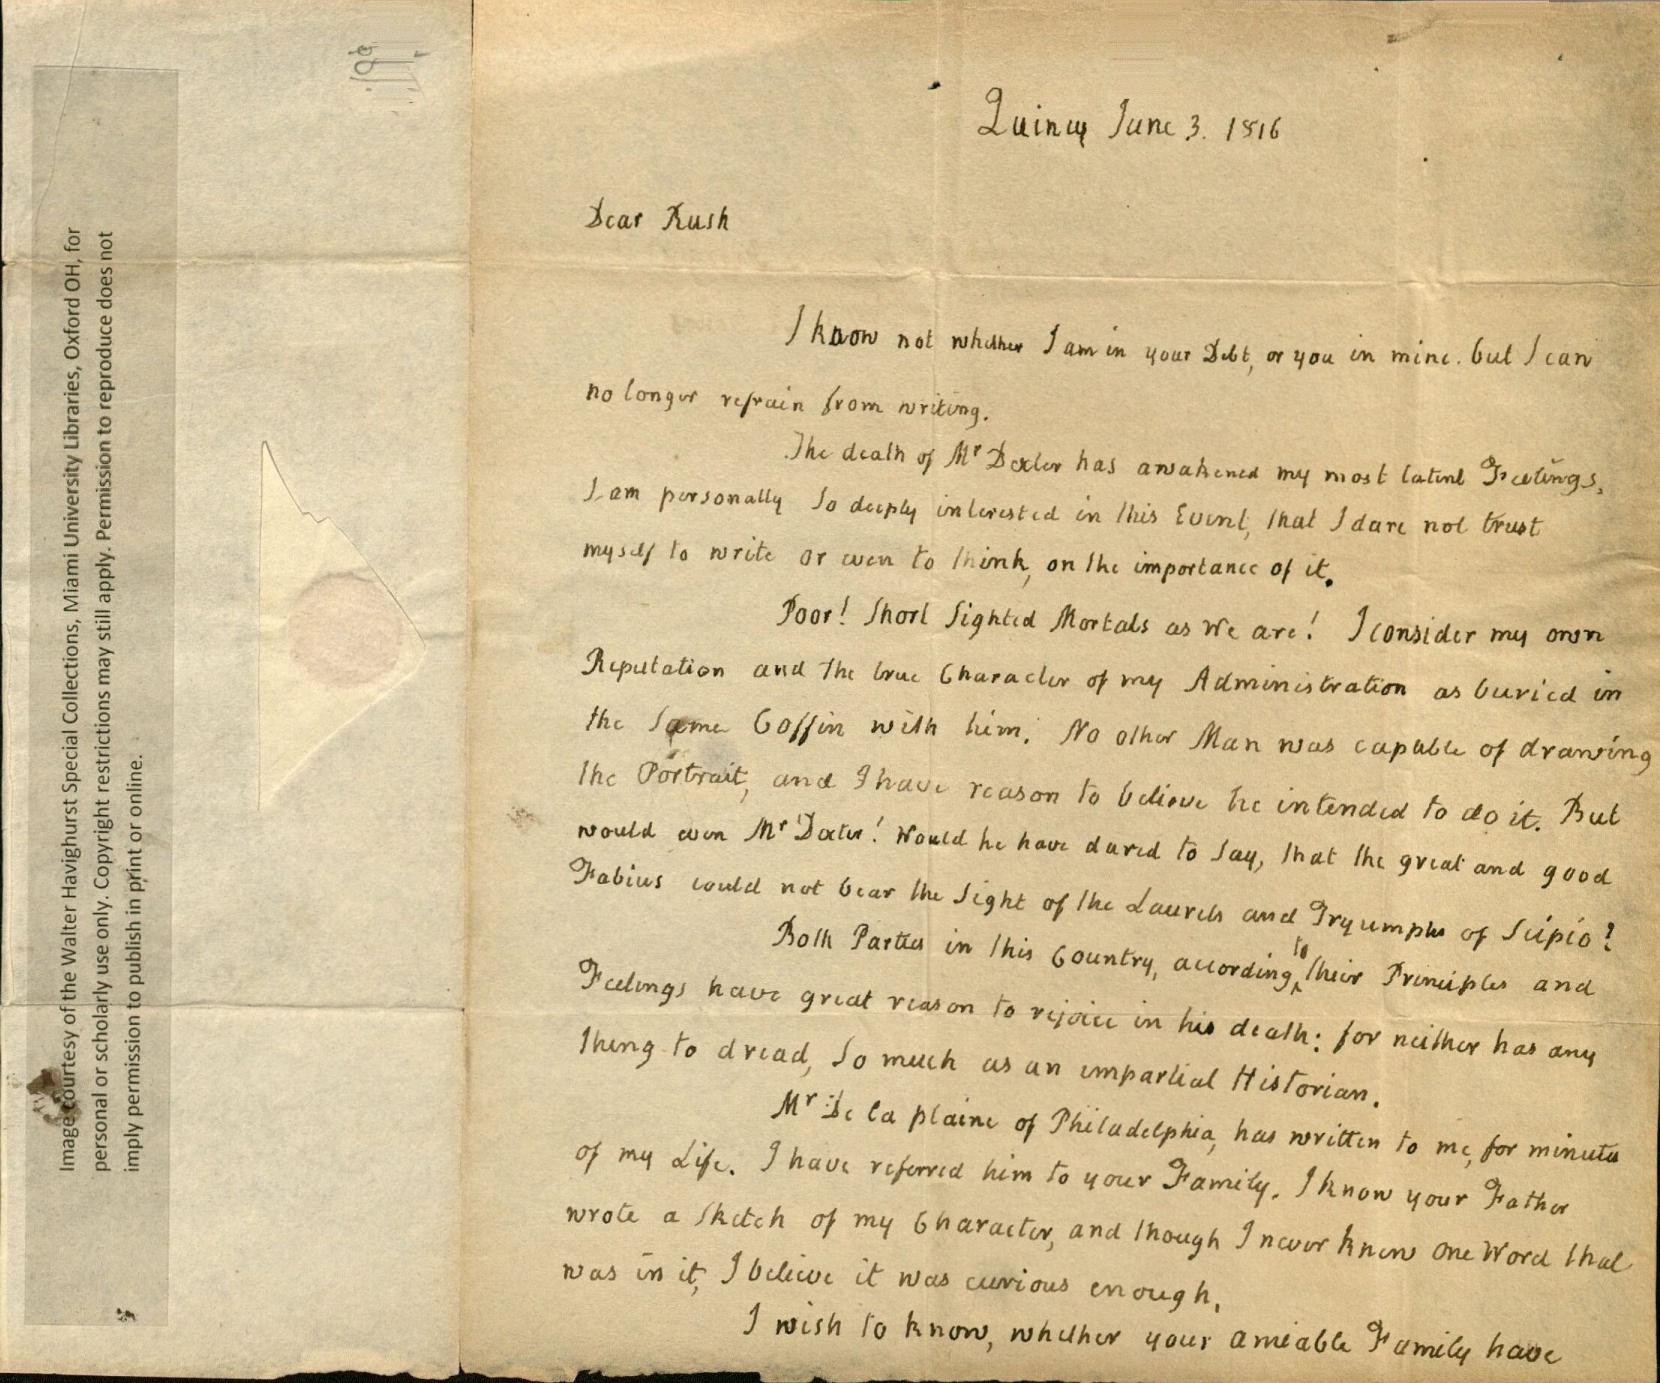 Image courtesy of the Walter Havighurst Special Collections, Miami University Libraries, Oxford OH, for
personal or scholarly use only. Copyright restrictions may still apply. Permission to reproduce does not
imply permission to publish in print or online.
Quincy June 3. 1816
Dear Rush
I know not whether I am in your Debt, or you in mine. but I can
no longer refrain from writing.
The death of Mr Dexter has awakened my most latent Feelings.
I am personally So deeply interested in this Event, that I dare not trust
myself to write or even to think, on the importance of it.
Poor! Short Sighted Mortals as We are! I consider my own
Reputation and the true Character of my Administration as buried in
the Same Coffin with him. No other Man was capable of drawing
the Portrait, and I have reason to believe he intended to do it. But
would even Mr Dexter! Would he have dared to Say, that the great and good
Fabius could not bear the Sight of the Laurels and Tryumphs of Scipio?
Both Parties in this Country, according to their Principles and
Feelings have great reason to rejoice in his death: for neither has any
thing to dread, So much as an impartial Historian.
Mr De la plaine of Philadelphia, has written to me, for minutes
of my Life. I have referred him to your Family. I know your Father
wrote a Sketch of my Character, and though I never knew one Word that
was in it, I believe it was curious enough.
I wish to know, whether your amiable Family have